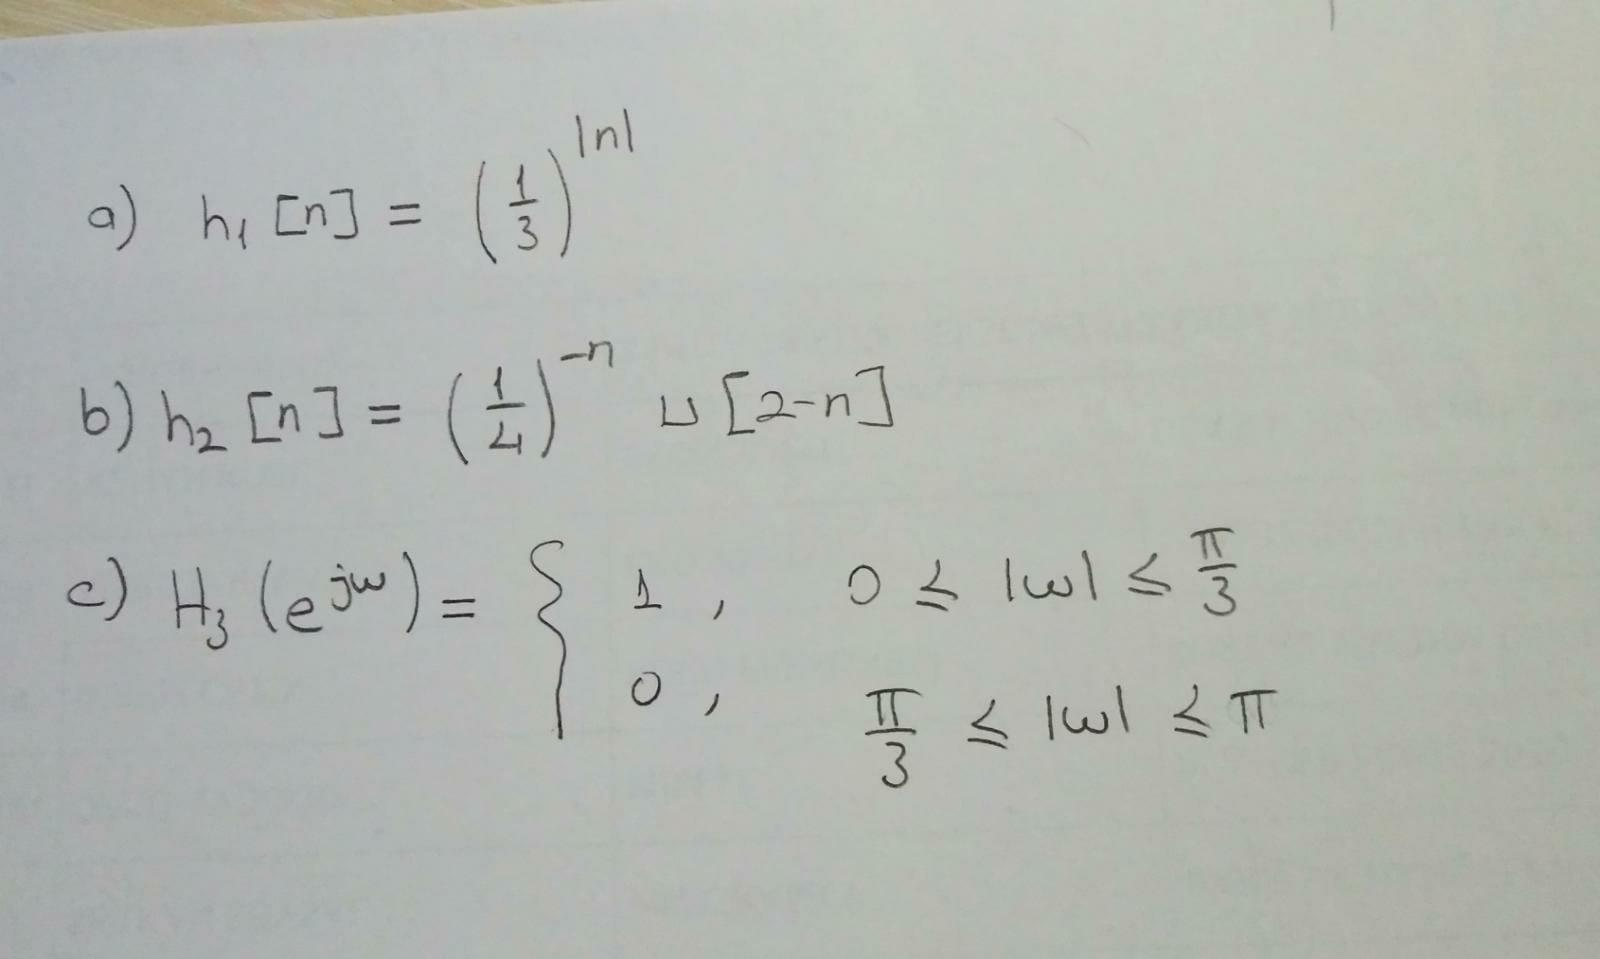 a) h₁[n] = (1/3)^|n|
b) h₂[n] = (1/4)^-n u[2-n]
c) H₃(e^jω) = { 1, 0 ≤ |ω| ≤ π/3
0, π/3 ≤ |ω| ≤ π